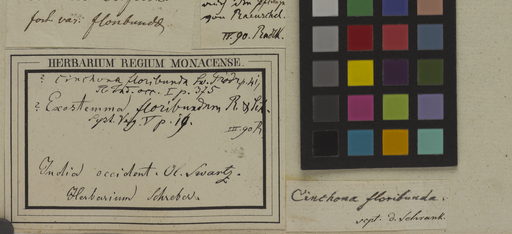 fort var: floribunda
von Raeuschel.
IV.90. 
HERBARIUM REGIUM MONACENSE.
? Cinchona floribunda Sw.
Fl. Ind. occ. I p. 375
? Exostemma floribundum R. & Sch.
Syst. Veg. V p. 19.
III 90 R
India occident. Ol. Swartz.
Herbarium Schreber.
Cinchona floribunda.
scpt. d. Schrank.